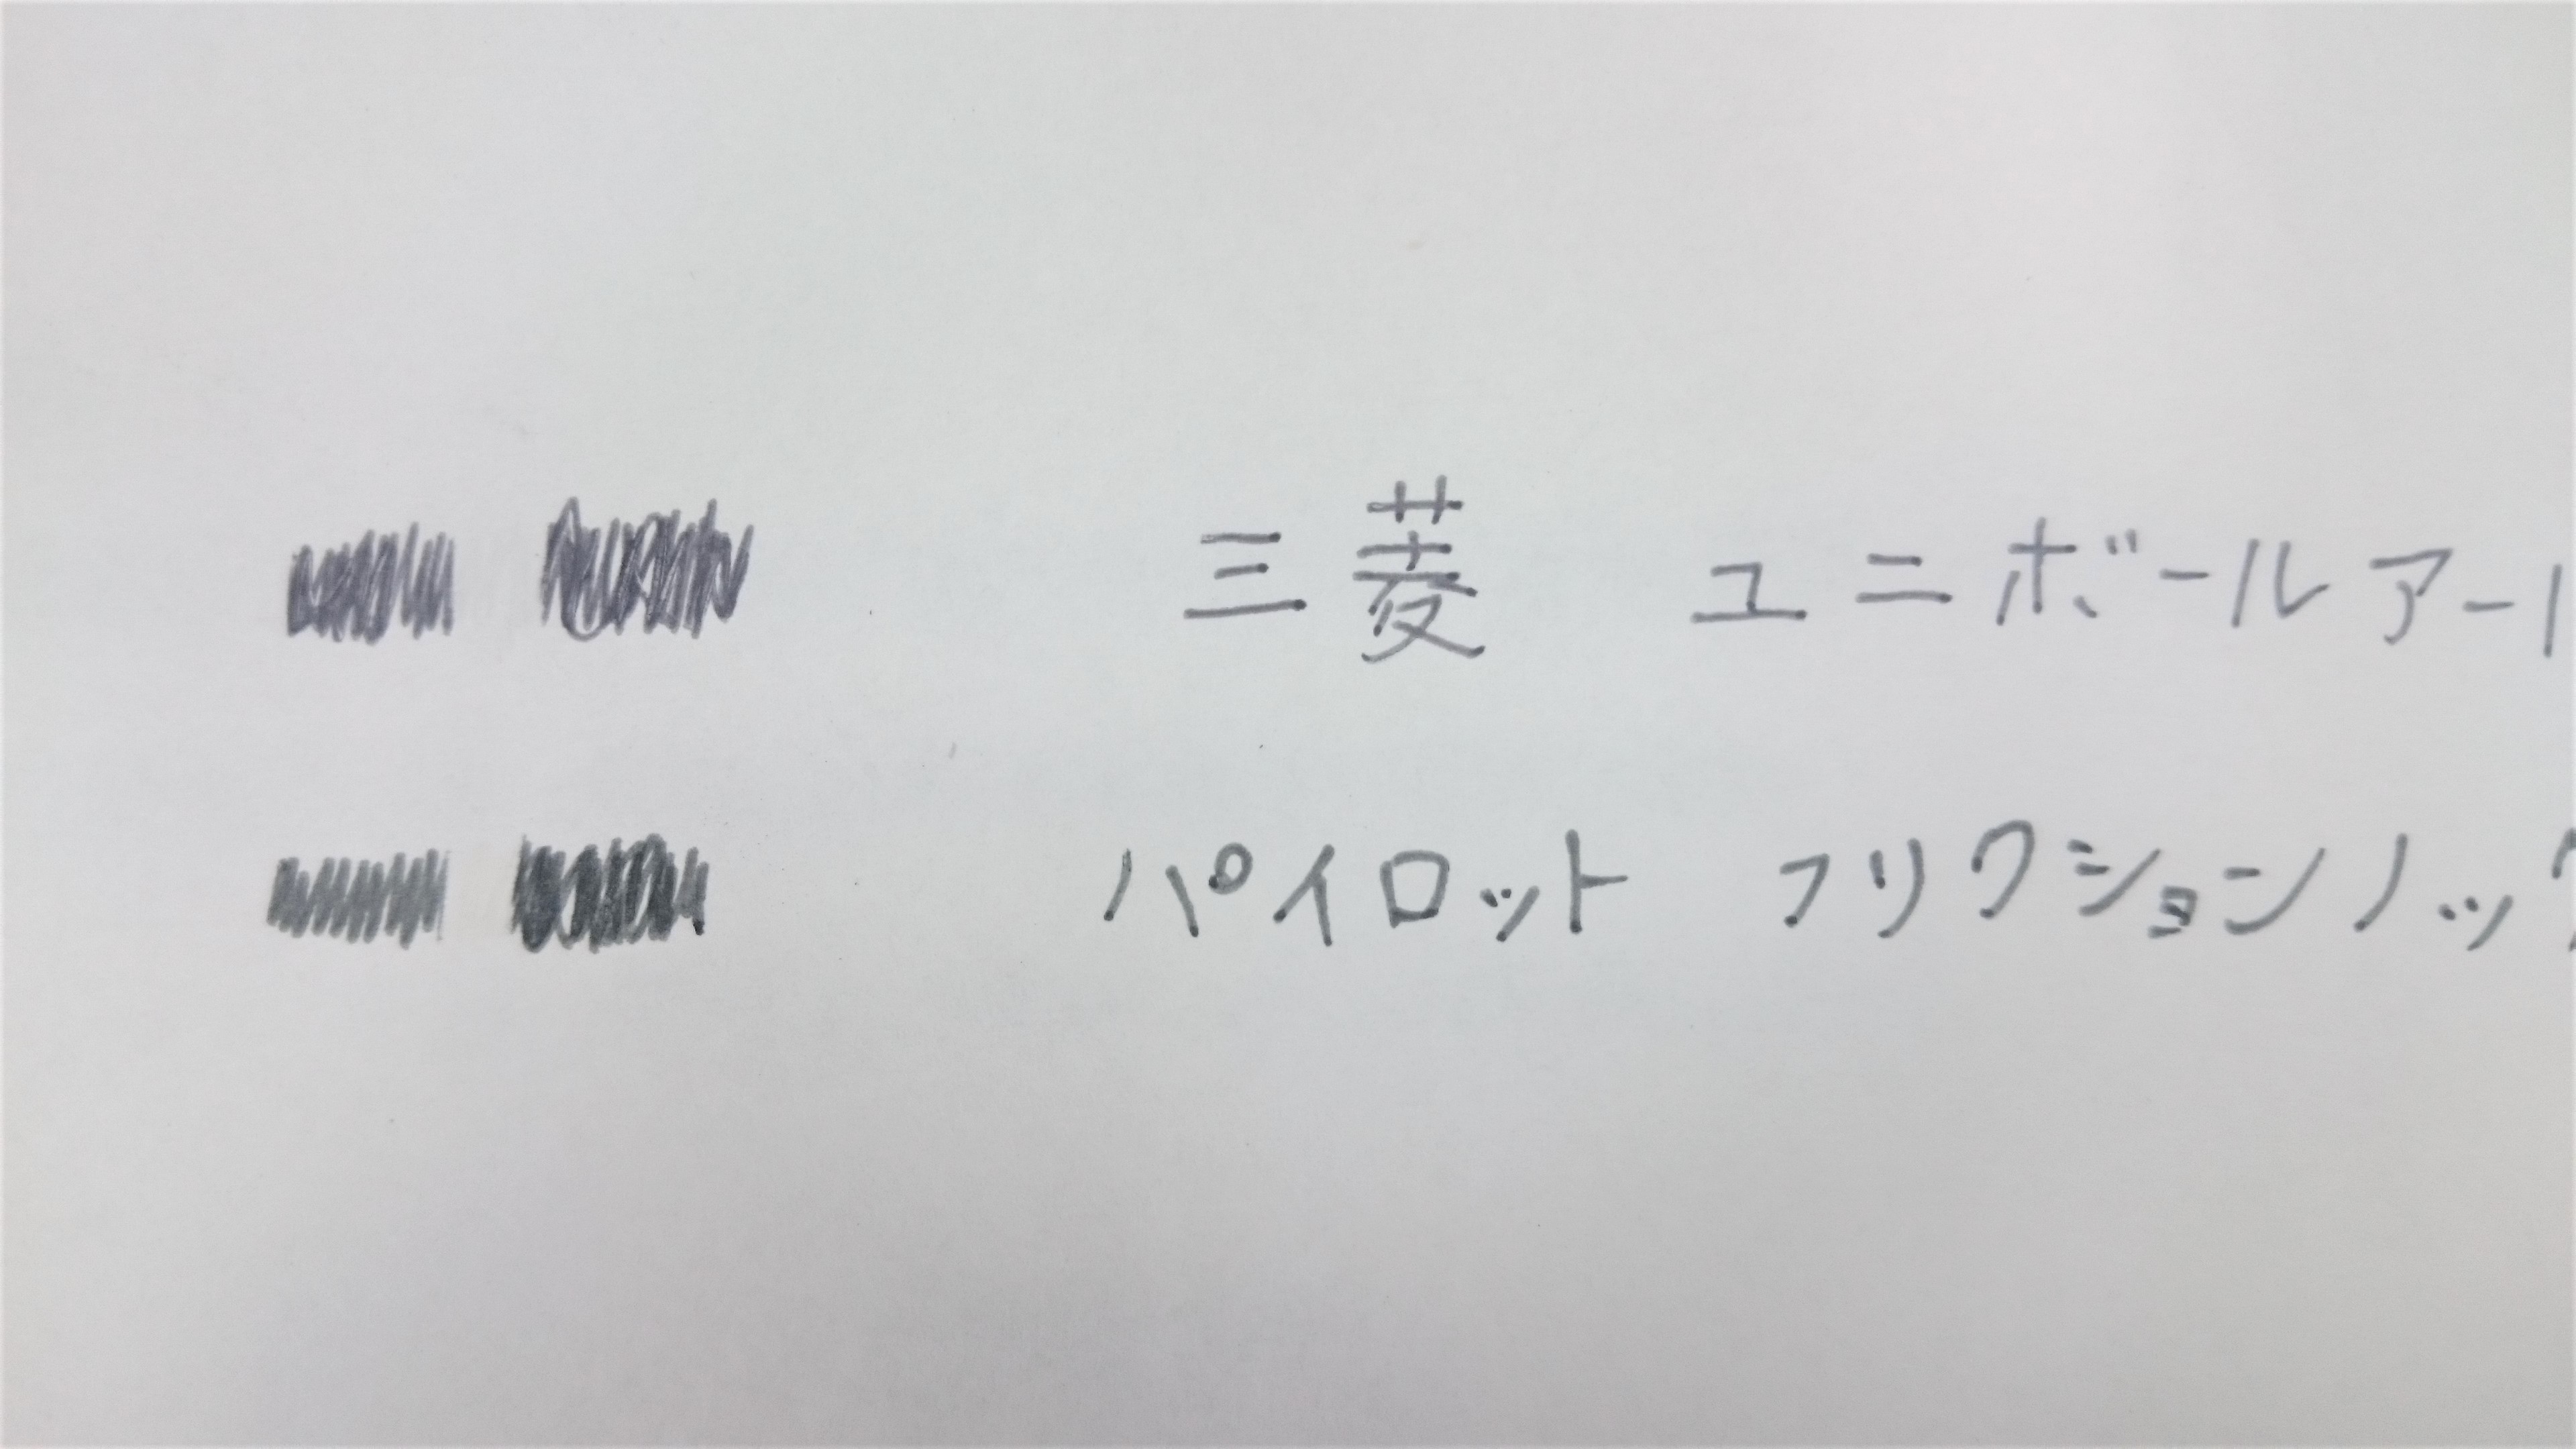 三菱 ユニボールアー
パイロット フリクションノッ